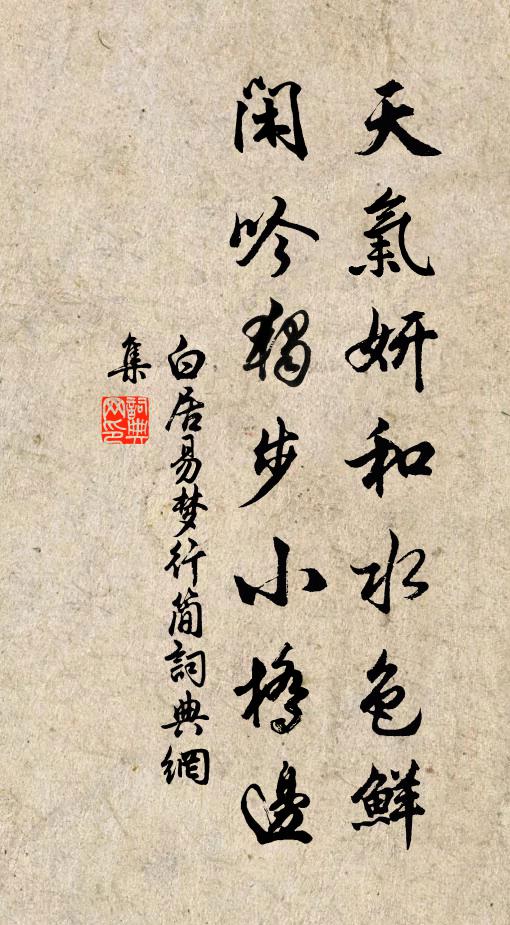 天氣妍和水色鮮
閑吟獨步小橋邊
白居易梦行简詞典網
集
詞典网印